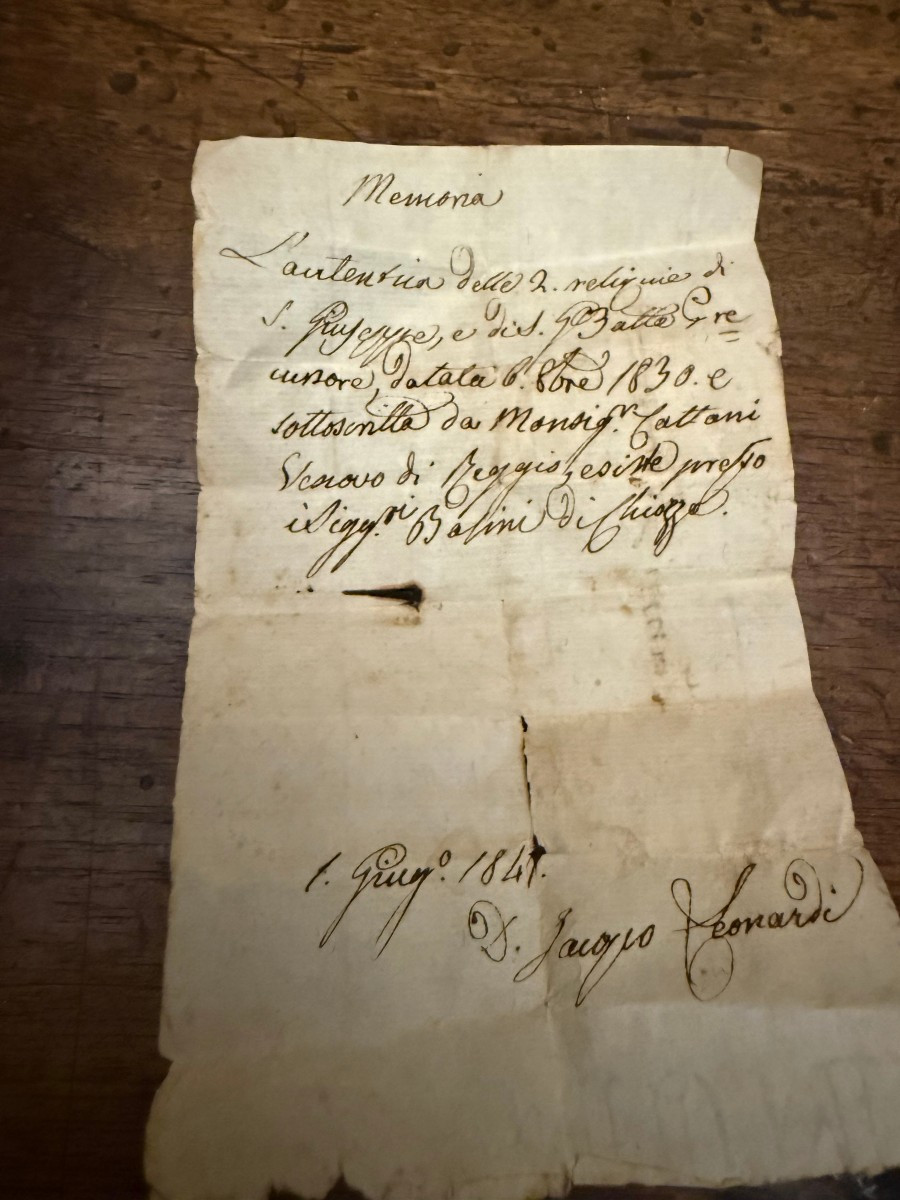 Memoria
L'autentica delle 2. reliquie di
S. Giuseppe, e di S. G Batta Pre
cursore, datata 6. 8bre 1830. e
sottoscritta da Monsigr. Cattani
Vescovo di Reggio, esiste presso
i Siggri. Basini di Chiozzo.
1. Giugo. 1841.
D. Jacopo Leonardi